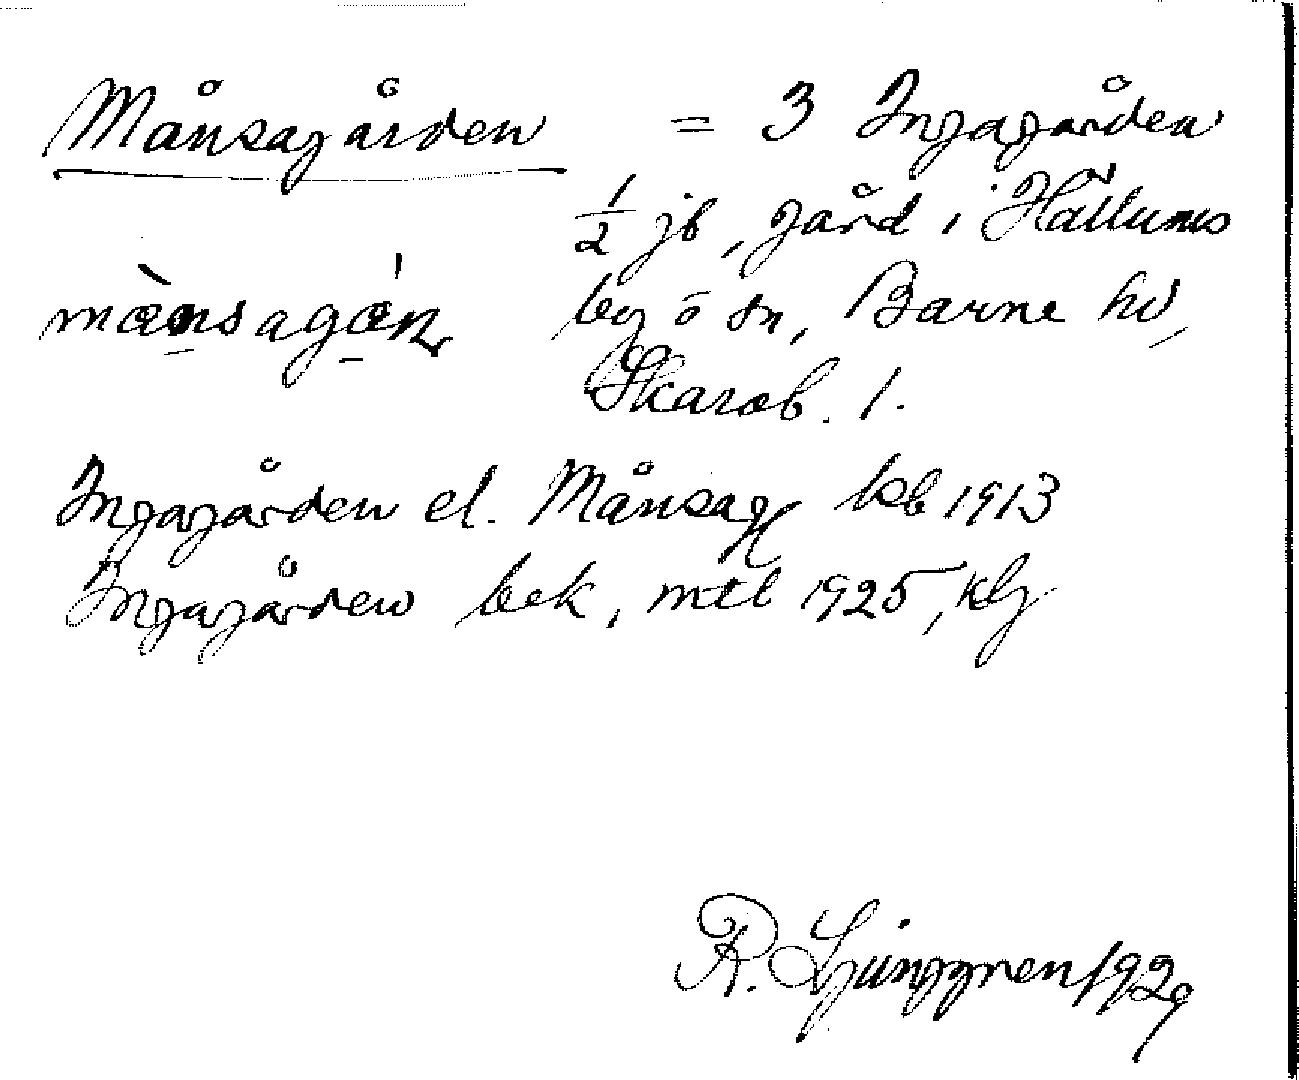 Månsagården = 3 Ingagården
1/2 jb, gård i Hällums
by o sn, Barne hd,
Skarab. l.
mæ̀nsagǽn
Ingagården el. Månsag kb 1913
Ingagården bek, mtl 1925, klg
R. Ljunggren 1929